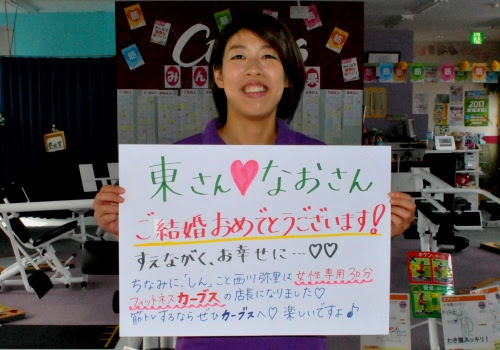 東さん♥なおさん
ご結婚おめでとうございます!
すえながく、お幸せに…♡♡
ちなみに、「しん」こと西川弥里は女性専用30分
フィットネスカーブスの店長になりました♡
筋トレするならぜひカーブスへ♡楽しいですよ♪
2017